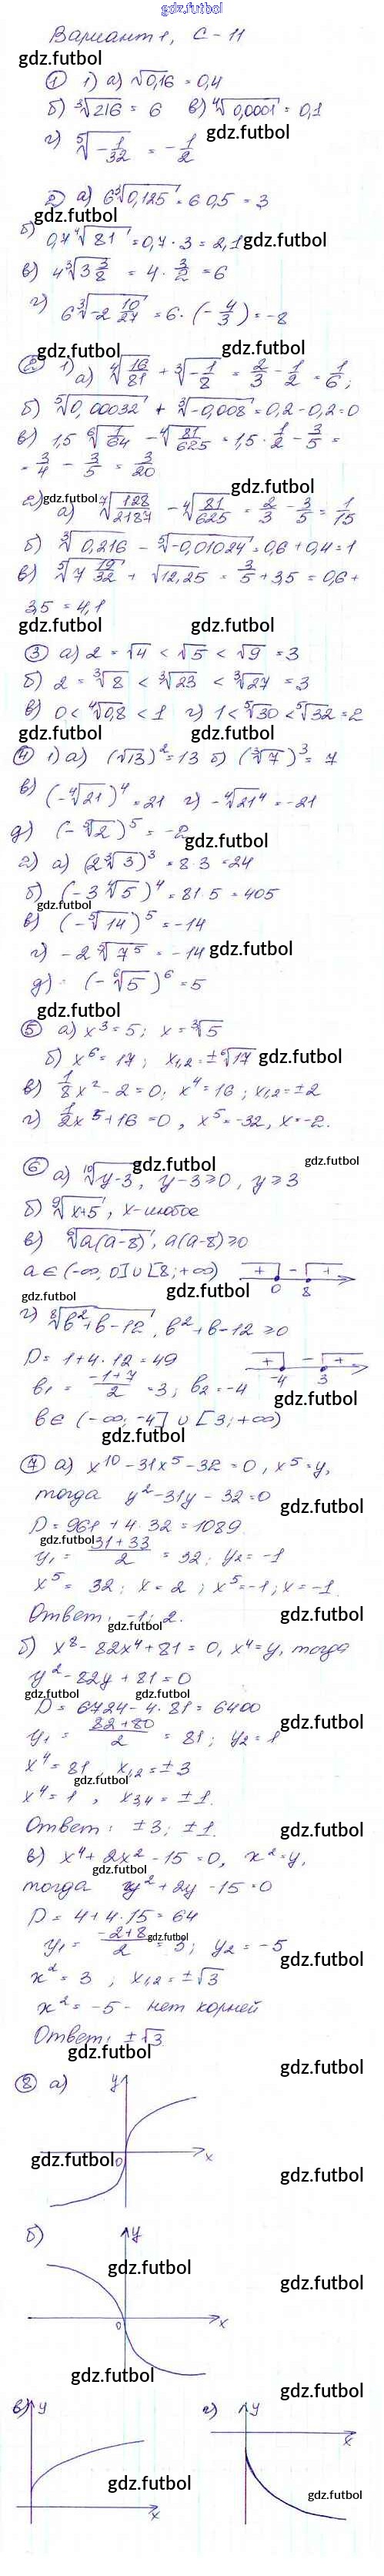 gdz.futbol
Вариант 1, С-11
gdz.futbol
① 1) а) √0,16 = 0,4
б) ³√216 = 6 в) ⁴√0,0001 = 0,1
г) ⁵√-1/32 = -1/2 gdz.futbol
2) а) 6³√0,125 = 6·0,5 = 3
gdz.futbol
б) 0,7⁴√81 = 0,7·3 = 2,1 gdz.futbol
в) 4³√3 3/8 = 4·3/2 = 6
г) 6³√-2 10/27 = 6·(-4/3) = -8
gdz.futbol gdz.futbol
② 1) а) ⁴√16/81 + ³√-1/8 = 2/3 - 1/2 = 1/6;
б) ⁵√0,00032 + ³√-0,008 = 0,2-0,2=0
в) 1,5 ⁶√1/64 - ⁴√81/625 = 1,5·1/2 - 3/5 =
= 3/4 - 3/5 = 3/20
gdz.futbol gdz.futbol
2) а) ⁷√128/2187 - ⁴√81/625 = 2/3 - 3/5 = 1/15
б) ³√0,216 - ⁵√-0,01024 = 0,6+0,4=1
в) ⁵√7 19/32 + √12,25 = 3/5 + 3,5 = 0,6+
3,5 = 4,1
gdz.futbol gdz.futbol
③ а) 2 = √4 < √5 < √9 = 3
б) 2 = ³√8 < ³√23 < ³√27 = 3
в) 0 < ⁴√0,8 < 1 г) 1 < ⁵√30 < ⁵√32 = 2
gdz.futbol gdz.futbol
④ 1) а) (√13)² = 13 б) (³√7)³ = 7
в) (-⁴√21)⁴ = 21 г) -⁴√21⁴ = -21
д) (-⁵√2)⁵ = -2
gdz.futbol
2) а) (2³√3)³ = 8·3 = 24
б) (-3⁴√5)⁴ = 81·5 = 405
gdz.futbol
в) (-⁵√14)⁵ = -14
г) -2⁵√7⁵ = -14 gdz.futbol
д) (-⁶√5)⁶ = 5
gdz.futbol
⑤ а) x³ = 5; x = ³√5
б) x⁶ = 17; x₁,₂ = ±⁶√17 gdz.futbol
в) 1/8x² - 2 = 0; x⁴ = 16; x₁,₂ = ±2
г) 1/2x⁵ + 16 = 0, x⁵ = -32, x = -2.
gdz.futbol gdz.futbol
⑥ а) ¹⁰√y-3, y-3≥0, y≥3
б) ⁹√x+5, x-любое
в) ⁶√a(a-8), a(a-8)≥0
a∈(-∞, 0]∪[8;+∞) + - + 0 8
gdz.futbol gdz.futbol
г) ⁸√b²+b-12, b²+b-12≥0
D = 1+4·12 = 49 + - + -4 3
b₁ = -1+7/2 = 3; b₂ = -4
gdz.futbol
b∈(-∞, -4]∪[3;+∞)
gdz.futbol
⑦ а) x¹⁰-31x⁵-32=0, x⁵=y,
тогда y²-31y-32=0
gdz.futbol
D = 961+4·32 = 1089
gdz.futbol
y₁ = 31+33/2 = 32; y₂ = -1
x⁵ = 32; x = 2; x⁵ = -1; x = -1.
Ответ: -1; 2. gdz.futbol
gdz.futbol
б) x⁸-82x⁴+81 = 0, x⁴=y, тогда
y²-82y+81=0
gdz.futbol gdz.futbol
D = 6724-4·81 = 6400
gdz.futbol
y₁ = 82+80/2 = 81; y₂ = 1
x⁴ = 81, x₁,₂ = ±3
gdz.futbol
x⁴ = 1, x₃,₄ = ±1.
Ответ: ±3; ±1. gdz.futbol
в) x⁴+2x²-15=0, x²=y,
gdz.futbol
тогда y²+2y-15=0
D = 4+4·15 = 64
y₁ = -2+8/2 = 3; y₂ = -5
gdz.futbol
gdz.futbol
x² = 3, x₁,₂ = ±√3
x² = -5 - нет корней
Ответ: ±√3
gdz.futbol
gdz.futbol
⑧ а) y
gdz.futbol 0 x
gdz.futbol
б) y
gdz.futbol
gdz.futbol
0 x
gdz.futbol
gdz.futbol
в) y г) y
x
gdz.futbol
gdz.futbol
x